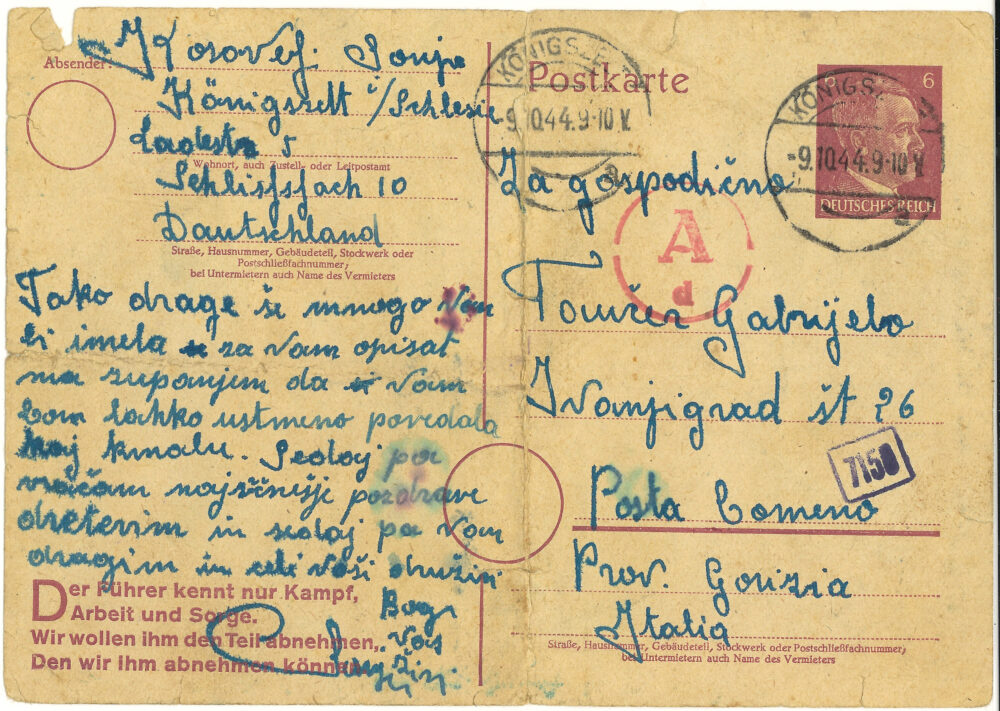 Absender:
Kosovel Sonja
Königszelt i/Schlesie
Ladestr 5
Wohnort, auch Zustell- oder Leitpostamt
Schlisfsfach 10
Dautschland
Straße, Hausnummer, Gebäudeteil, Stockwerk oder
Postschließfachnummer;
bei Untermietern auch Name des Vermieters
Tako drage še mnogo Vam
bi imela za Vam opisat
ma zupanjem da Vam
bom lahko ustmeno povedala
kaj kmalu. Sedaj pa
vračam najsrčnejše pozdrave
dretevim in sedaj pa Vam
dragim in celi Vaši družini
Bog
Vas
živi
Der Führer kennt nur Kampf,
Arbeit und Sorge.
Wir wollen ihm den Teil abnehmen,
Den wir Ihm abnehmen können
Postkarte
KÖNIGSZE
-9.10.44.9-10 V.
a
6
KÖNIGSZ
-9.10.44.9-10 V.
a
DEUTSCHES REICH
Za gospodično
A
d
Tavčer Gabrijelo
Ivanjigrad št 26
7150
Posta Comeno
Prov. Gorizia
Italia
Straße, Hausnummer, Gebäudeteil, Stockwerk oder Postschließfachnummer;
bei Untermietern auch Name des Vermieters